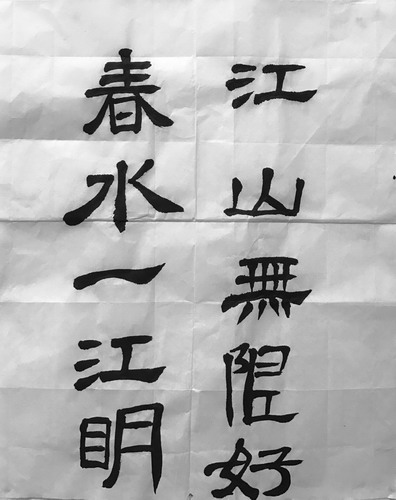 江山無限好
春水一江明